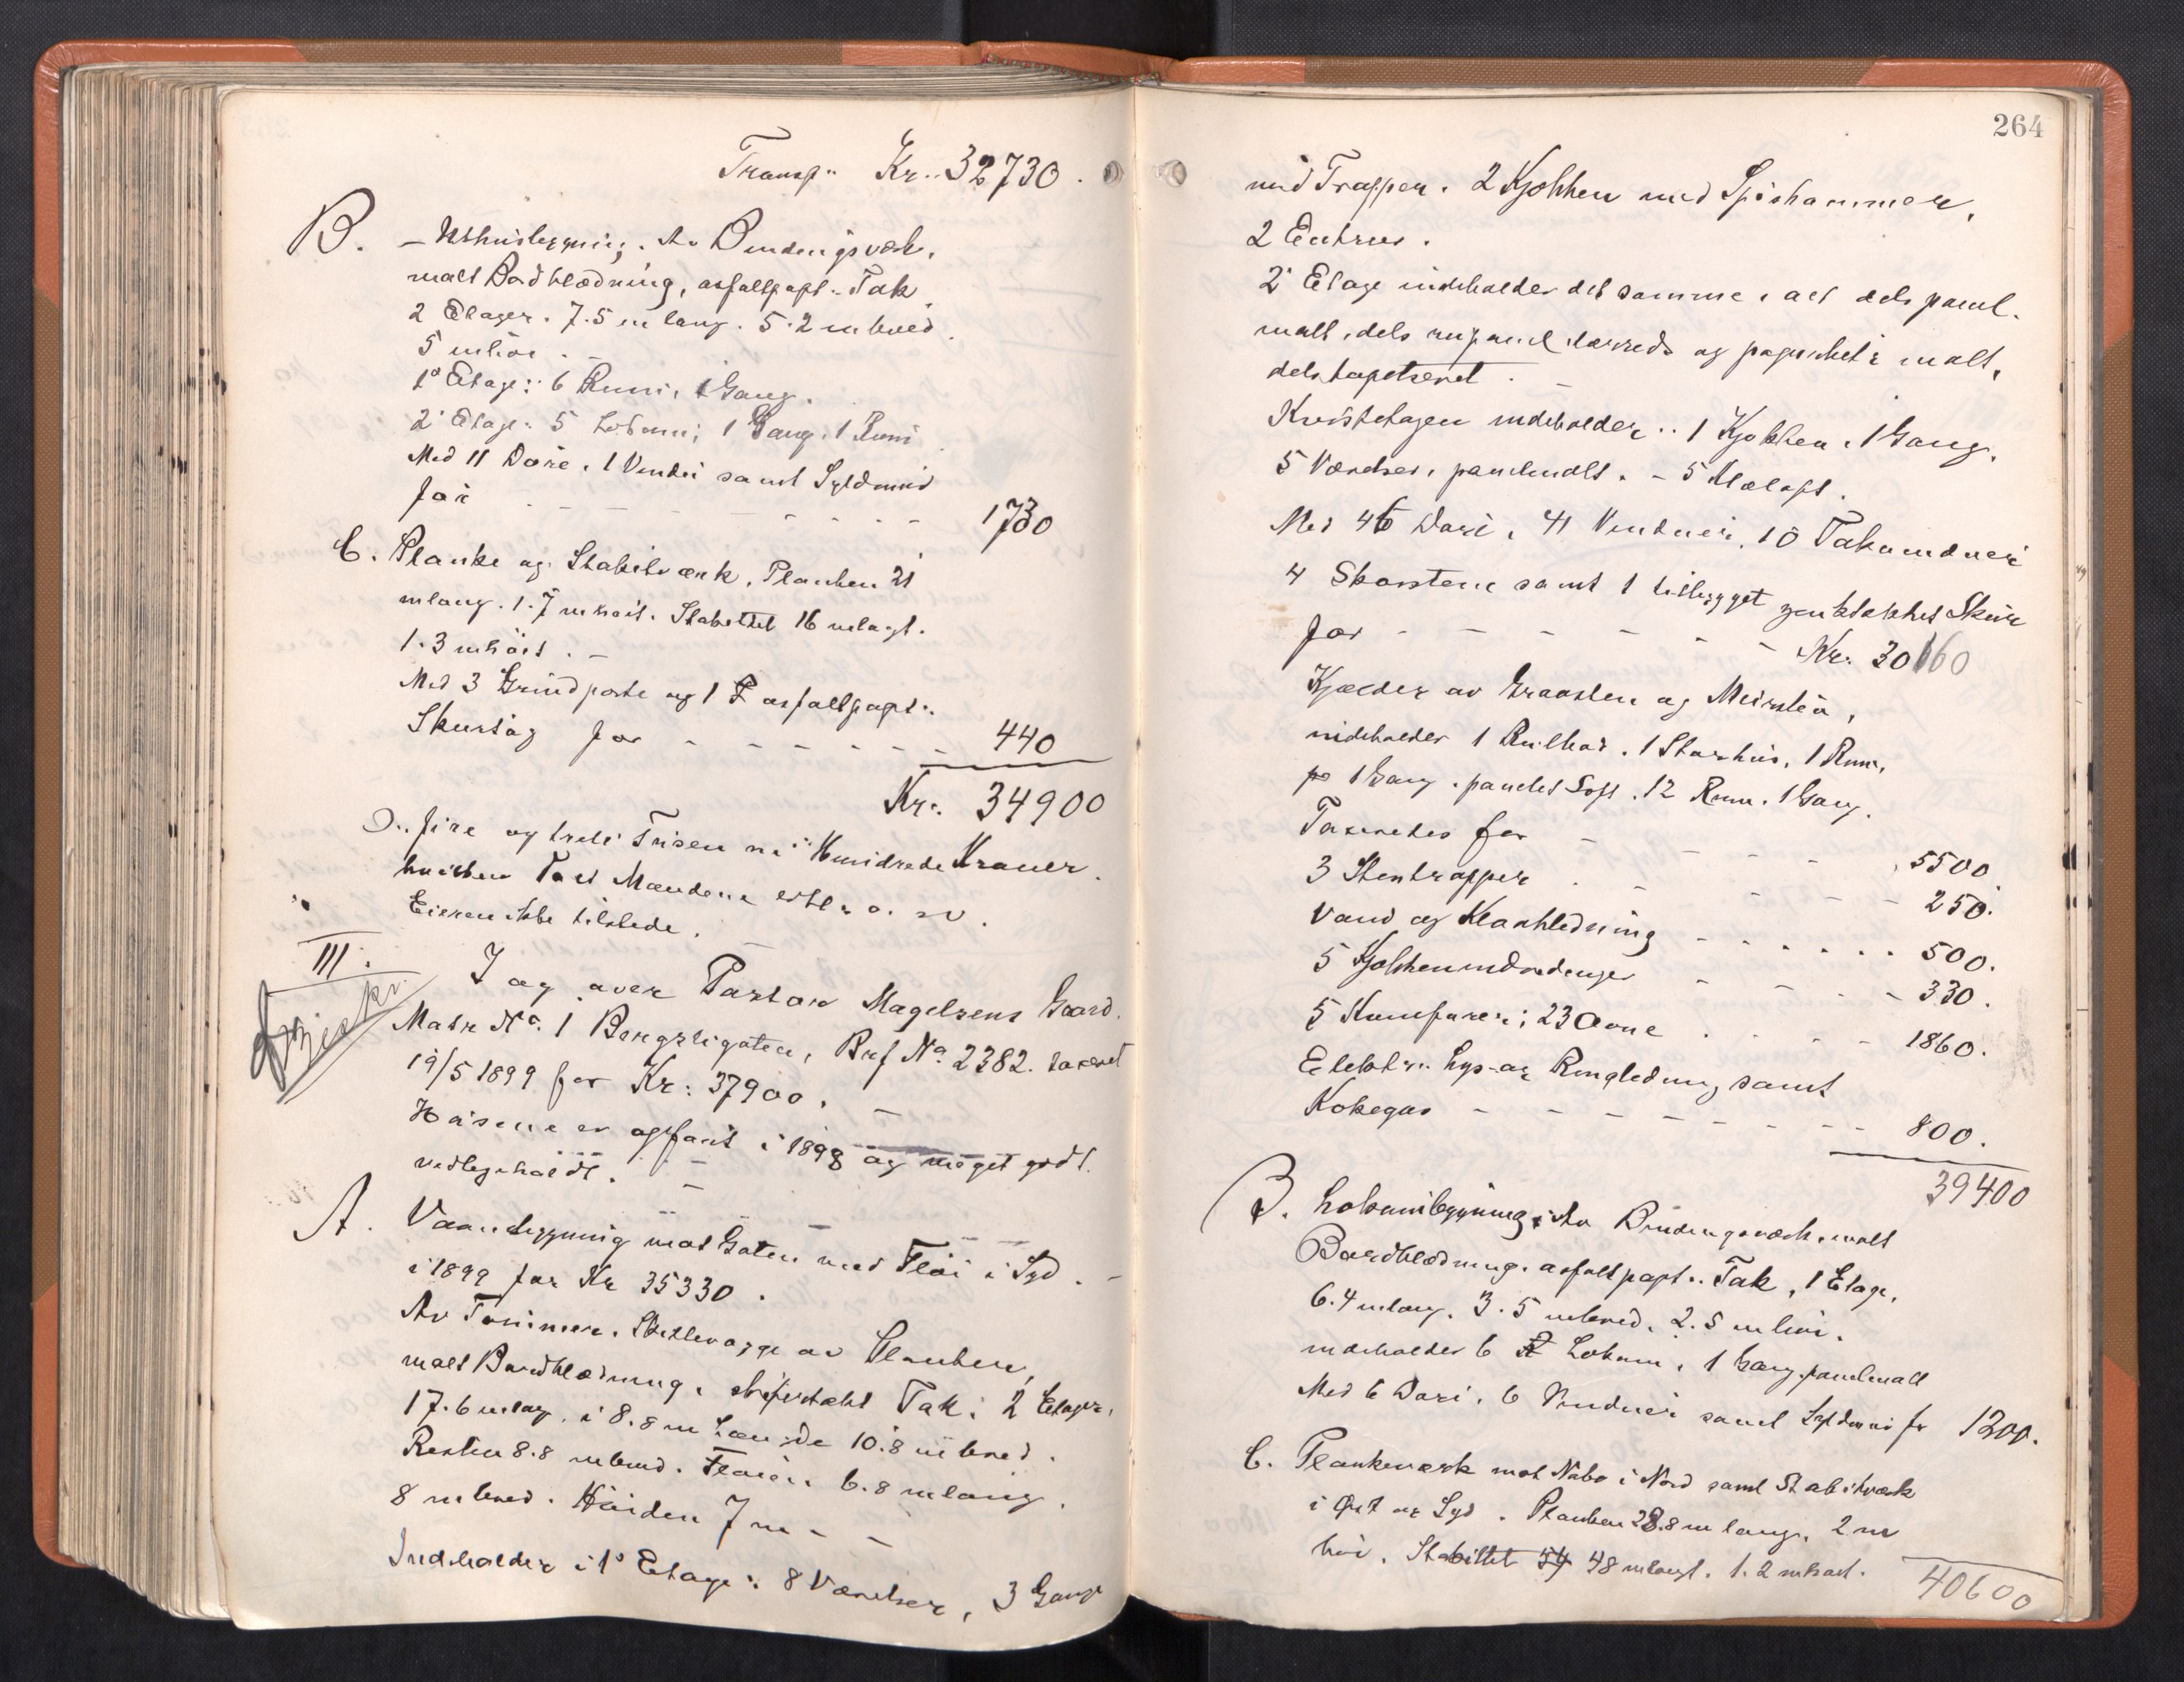 Transp:. Kr.. 32730.
B. – Uthusbygning. Av Bindingsværk,
malt Bordklædning, asfaltpapt:. Tak
2 Etager. 7.5 m lang. 5.2 m bred.
5 m höi. –
1' Etage: 6 Rum, 1 Gang.
2' Etage: 5 Lokum; 1 Gang. 1 Rum
Med 11 Döre. 1 Vindu samt Syldmur
for - - - - - 1730
C. Planke og Stakitværk. Planken 21
m lang. 1.7 m höit. Stakittet 16 m lagt.
1.3 m höit. –
Med 3 Grindporte og 1 asfaltpapt:.
Skurtag for - - - - - - 440
Kr. 34900
fire og treti Tusen ni Hundrede Kroner.
hvilken Taxt Mændene
Eieren ikke tilstede. –
III.
I og over Pastor Magelsens Gaard.
Matr No. 1 Bergsligaten, Brf No 2382. taxeret
19/5 1899 for Kr: 37900. –
Husene er opfört i 1898 og meget godt
vedlegeholdt. –
A. Vaanebygning mot Gaten med Flöi i Syd. –
i 1899 for Kr 35330.
Av Tömmer. Skillevægge av Planker,
malt Bordklædning, skifertækt Tak. 2 Etager,
17.6 m lang. i 8.8 m Længde 10.8 m bred.
Resten 8.8 m bred. Flöien 6.8 m lang.
8 m bred. Höiden 7 m - -
Indeholder i 1' Etage:. 8 Værelser, 3 Gange
264
med Trapper. 2 Kjökken med Spiskammer,
2 Entreer.
2' Etage indeholder det samme, alt dels panel-
malt, dels rupanel lærreds og papirbekl: malt,
dels tapetseret. –
Kvistetagen indeholder:. 1 Kjökken, 1 Gang,
5 Værelser, panelmalt. – 5 Mælaft.
Med 46 Döre, 41 Vinduer, 10 Takvinduer
4 Skorstene samt 1 tilbygget zinktækket Skur
for - - - - - - Kr. 30160
Kjælder av Graasten og Mursten,
indeholder 1 Rulbod. 1 Storhus, 1 Rum,
1 Gang. panelet Loft. 12 Rum. 1 Gang.
Taxeredes for - - - - 5500
3 Stentrapper. - - - - 250.
Vand og Kloakledning - - - - - - 500.
5 Kjökkenindredninger - - - - 330.
5 Komfurer; 23 Ovne - - - - 1860.
Elektr:. Lys- og Ringledning samt
Kokegas - - - - - - - - 800.
39400
B. Lokumbygning. Av Bindingsværk, malt
Bordklædning. asfaltpapt:. Tak, 1 Etage,
6.4 m lang. 3.5 m bred. 2.5 m höi.
indeholder 6 Lokum, 1 Gang. panelmalt
Med 6 Döre. 6 Vinduer samt Syldmur for 1200.
C. Plankeværk mot Nabo i Nord samt Stakitværk
i Öst og Syd. Planken 28.8 m lang. 2 m
höi. Stakittet 54 48 m langt. 1.2 m höit.
40600